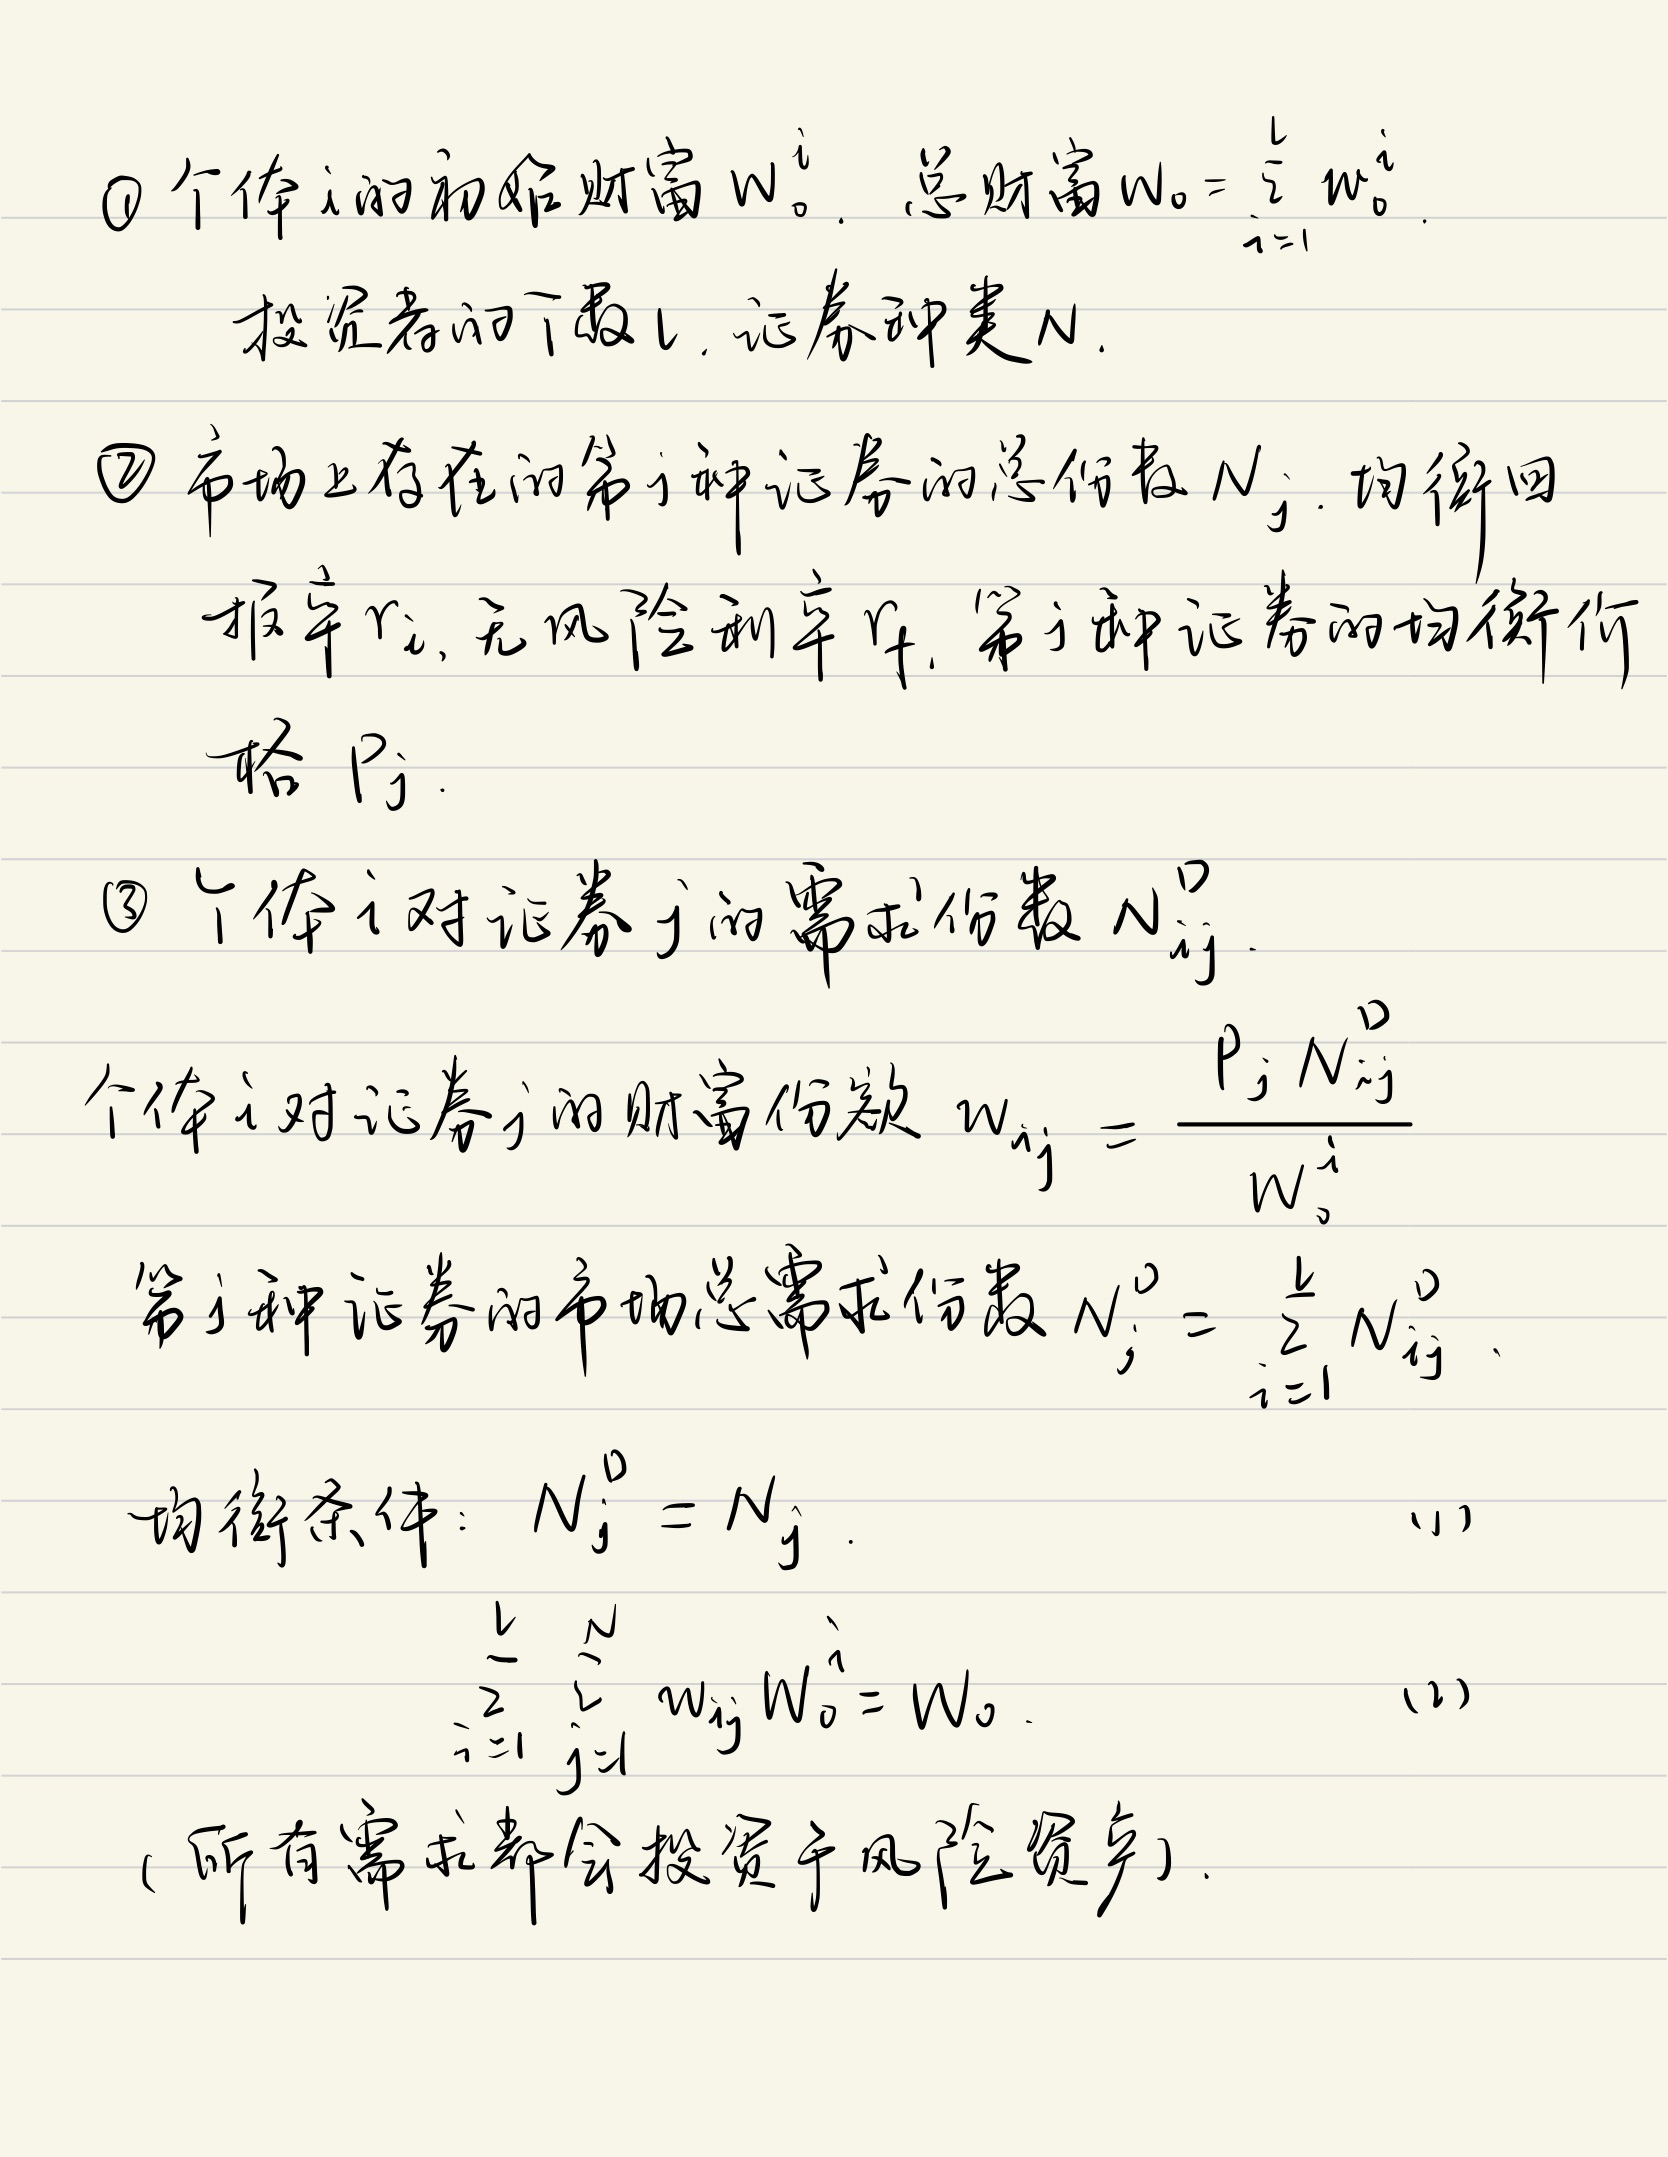 ① 个体i的初始财富 W₀ⁱ. 总财富W₀ = Σᵢ₌₁ᴸ W₀ⁱ.
投资者的个数L. 证券种类N.
② 市场上存在的第j种证券的总份数 Nⱼ. 均衡回
报率rᵢ, 无风险利率r_f. 第j种证券的均衡价
格 Pⱼ.
③ 个体i对证券j的需求份数 Nᵢⱼᴰ.
个体i对证券j的财富份额 wᵢⱼ = PⱼNᵢⱼᴰ / W₀ⁱ
第j种证券的市场总需求份数 Nⱼᴰ = Σᵢ₌₁ᴸ Nᵢⱼᴰ.
均衡条件: Nⱼᴰ = Nⱼ. (1)
Σᵢ₌₁ᴸ Σⱼ₌₁ᴺ wᵢⱼW₀ⁱ = W₀. (2)
(所有需求都会投资于风险资产).